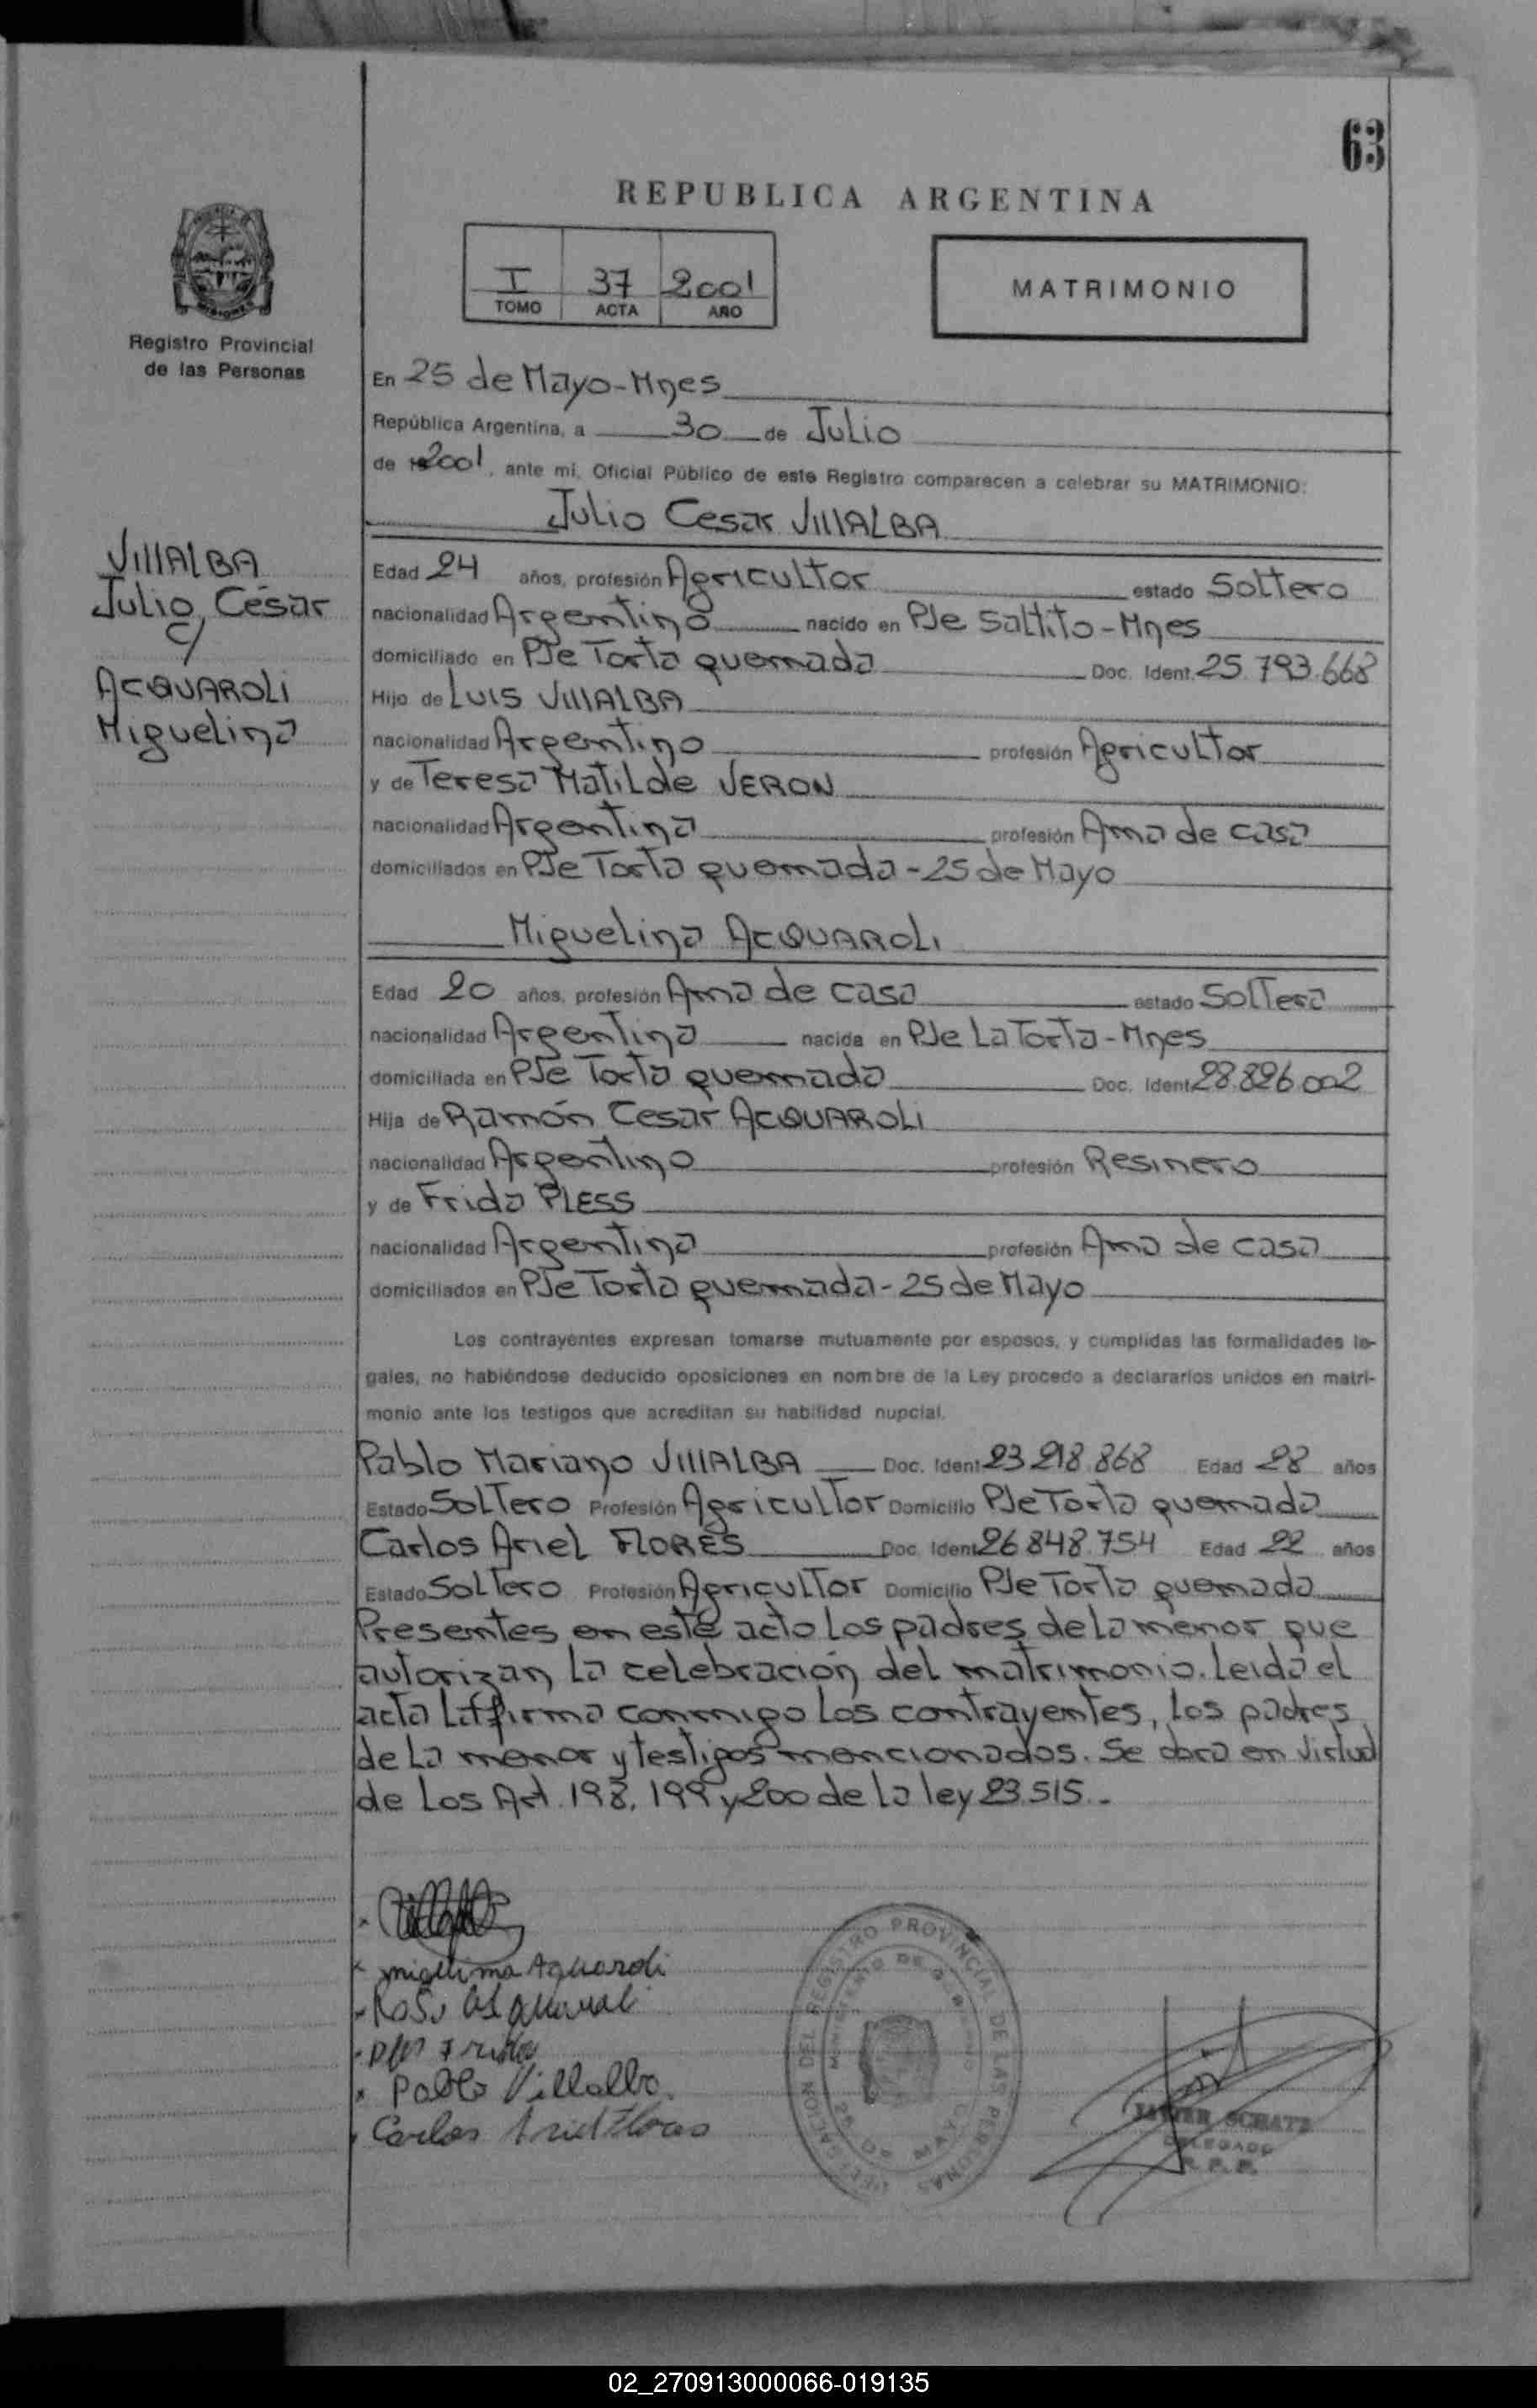 63
REPUBLICA ARGENTINA
I 37 2001
TOMO ACTA AÑO
MATRIMONIO
Registro Provincial
de las Personas
En 25 de Mayo-Mnes
República Argentina, a 30 de Julio
de 2001, ante mi, Oficial Público de este Registro comparecen a celebrar su MATRIMONIO:
Julio Cesar VIllALBA
VIllALBA
Julio César
c/
ACQUAROLI
Miguelina
Edad 24 años, profesión Agricultor estado Soltero
nacionalidad Argentino nacido en PJe Saltito-Mnes
domiciliado en PJe Torta quemada Doc. Ident. 25.793.668
Hijo de LUIS VIllALBA
nacionalidad Argentino profesión Agricultor
y de Teresa Matilde VERON
nacionalidad Argentina profesión Ama de casa
domiciliados en PJe Torta quemada-25 de Mayo
Miguelina ACQUAROLI
Edad 20 años, profesión Ama de casa estado Soltera
nacionalidad Argentina nacida en PJe La Torta-Mnes
domiciliada en PJe Torta quemada Doc. Ident. 28.826.002
Hija de Ramón Cesar ACQUAROLI
nacionalidad Argentino profesión Resinero
y de Frida PLESS
nacionalidad Argentina profesión Ama de casa
domiciliados en PJe Torta quemada-25 de Mayo
Los contrayentes expresan tomarse mutuamente por esposos, y cumplidas las formalidades le-
gales, no habiéndose deducido oposiciones en nombre de la Ley procedo a declararlos unidos en matri-
monio ante los testigos que acreditan su habilidad nupcial.
Pablo Mariano VIllALBA Doc. Ident. 23.218.868 Edad 28 años
Estado Soltero Profesión Agricultor Domicilio PJe Torta quemada
Carlos Ariel FLORES Doc. Ident. 26.848.754 Edad 22 años
Estado Soltero Profesión Agricultor Domicilio PJe Torta quemada
Presentes en este acto los padres de la menor que
autorizan la celebración del matrimonio. Leida el
acta la firma conmigo los contrayentes, los padres
de la menor y testigos mencionados. Se obra en virtud
de los Art. 198, 199 y 200 de la ley 23.515.-
Aquaroli
Pablo Villalba
Carlos Ariel Flores
DELEGACION DEL REGISTRO PROVINCIAL DE LAS PERSONAS
MINISTERIO DE GOBIERNO
25 DE MAYO
JAVIER SCHATZ
DELEGADO
R. P. P.
02_270913000066-019135